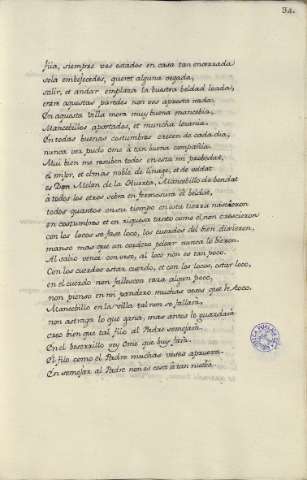 34.
fija, siempre vos estades en casa tan encerrada
sola embejecedes, queret alguna vegada,
salir, et andar emplaza la vuestra beldad loada,
entre aquestas paredes non vos aprestà nada,
En aquesta villa mora muy buena mancebia,
Mancebillos apostados, et muncha lozania.
En todas buenas costumbres crecen de cada dia,
nunca vez pudo ome à tan buena compañia.
Mui bien me reciben todos en esta mi pobredat,
el mijor, et el mas noble de linage, et de beldat
es Don Melon de la Ohuerta, Mancebillo de bondat
à todos los otros sobra en fermosura et beldat,
todos quantos en su tiempo en esta tierra nascieron
en costumbres et en riqueza tanto como el non crescieron
con los locos se fase loco, los cuerdos del bien dixieron,
manso mas que un cordero pelear nunca lo bieron.
Al sabio vencer con seso, al loco non es tan poco.
Con los cuerdos estar cuerdo, et con los locos, estar loco,
en el cuerdo non fallescen raza algun poco,
non pienso en mi pandero muchas veces que le toco.
Mancebillo en la villa tal non se fallara,
non astraga lo que gana, mas antes lo guardarà
creo bien que tal fijo al Padre semejarà.
En el beserrillo vey Ome que buy farà.
El fijo como el Padre muchas veces aprueva.
En semejar al Padre non es cosa à tan nueva.